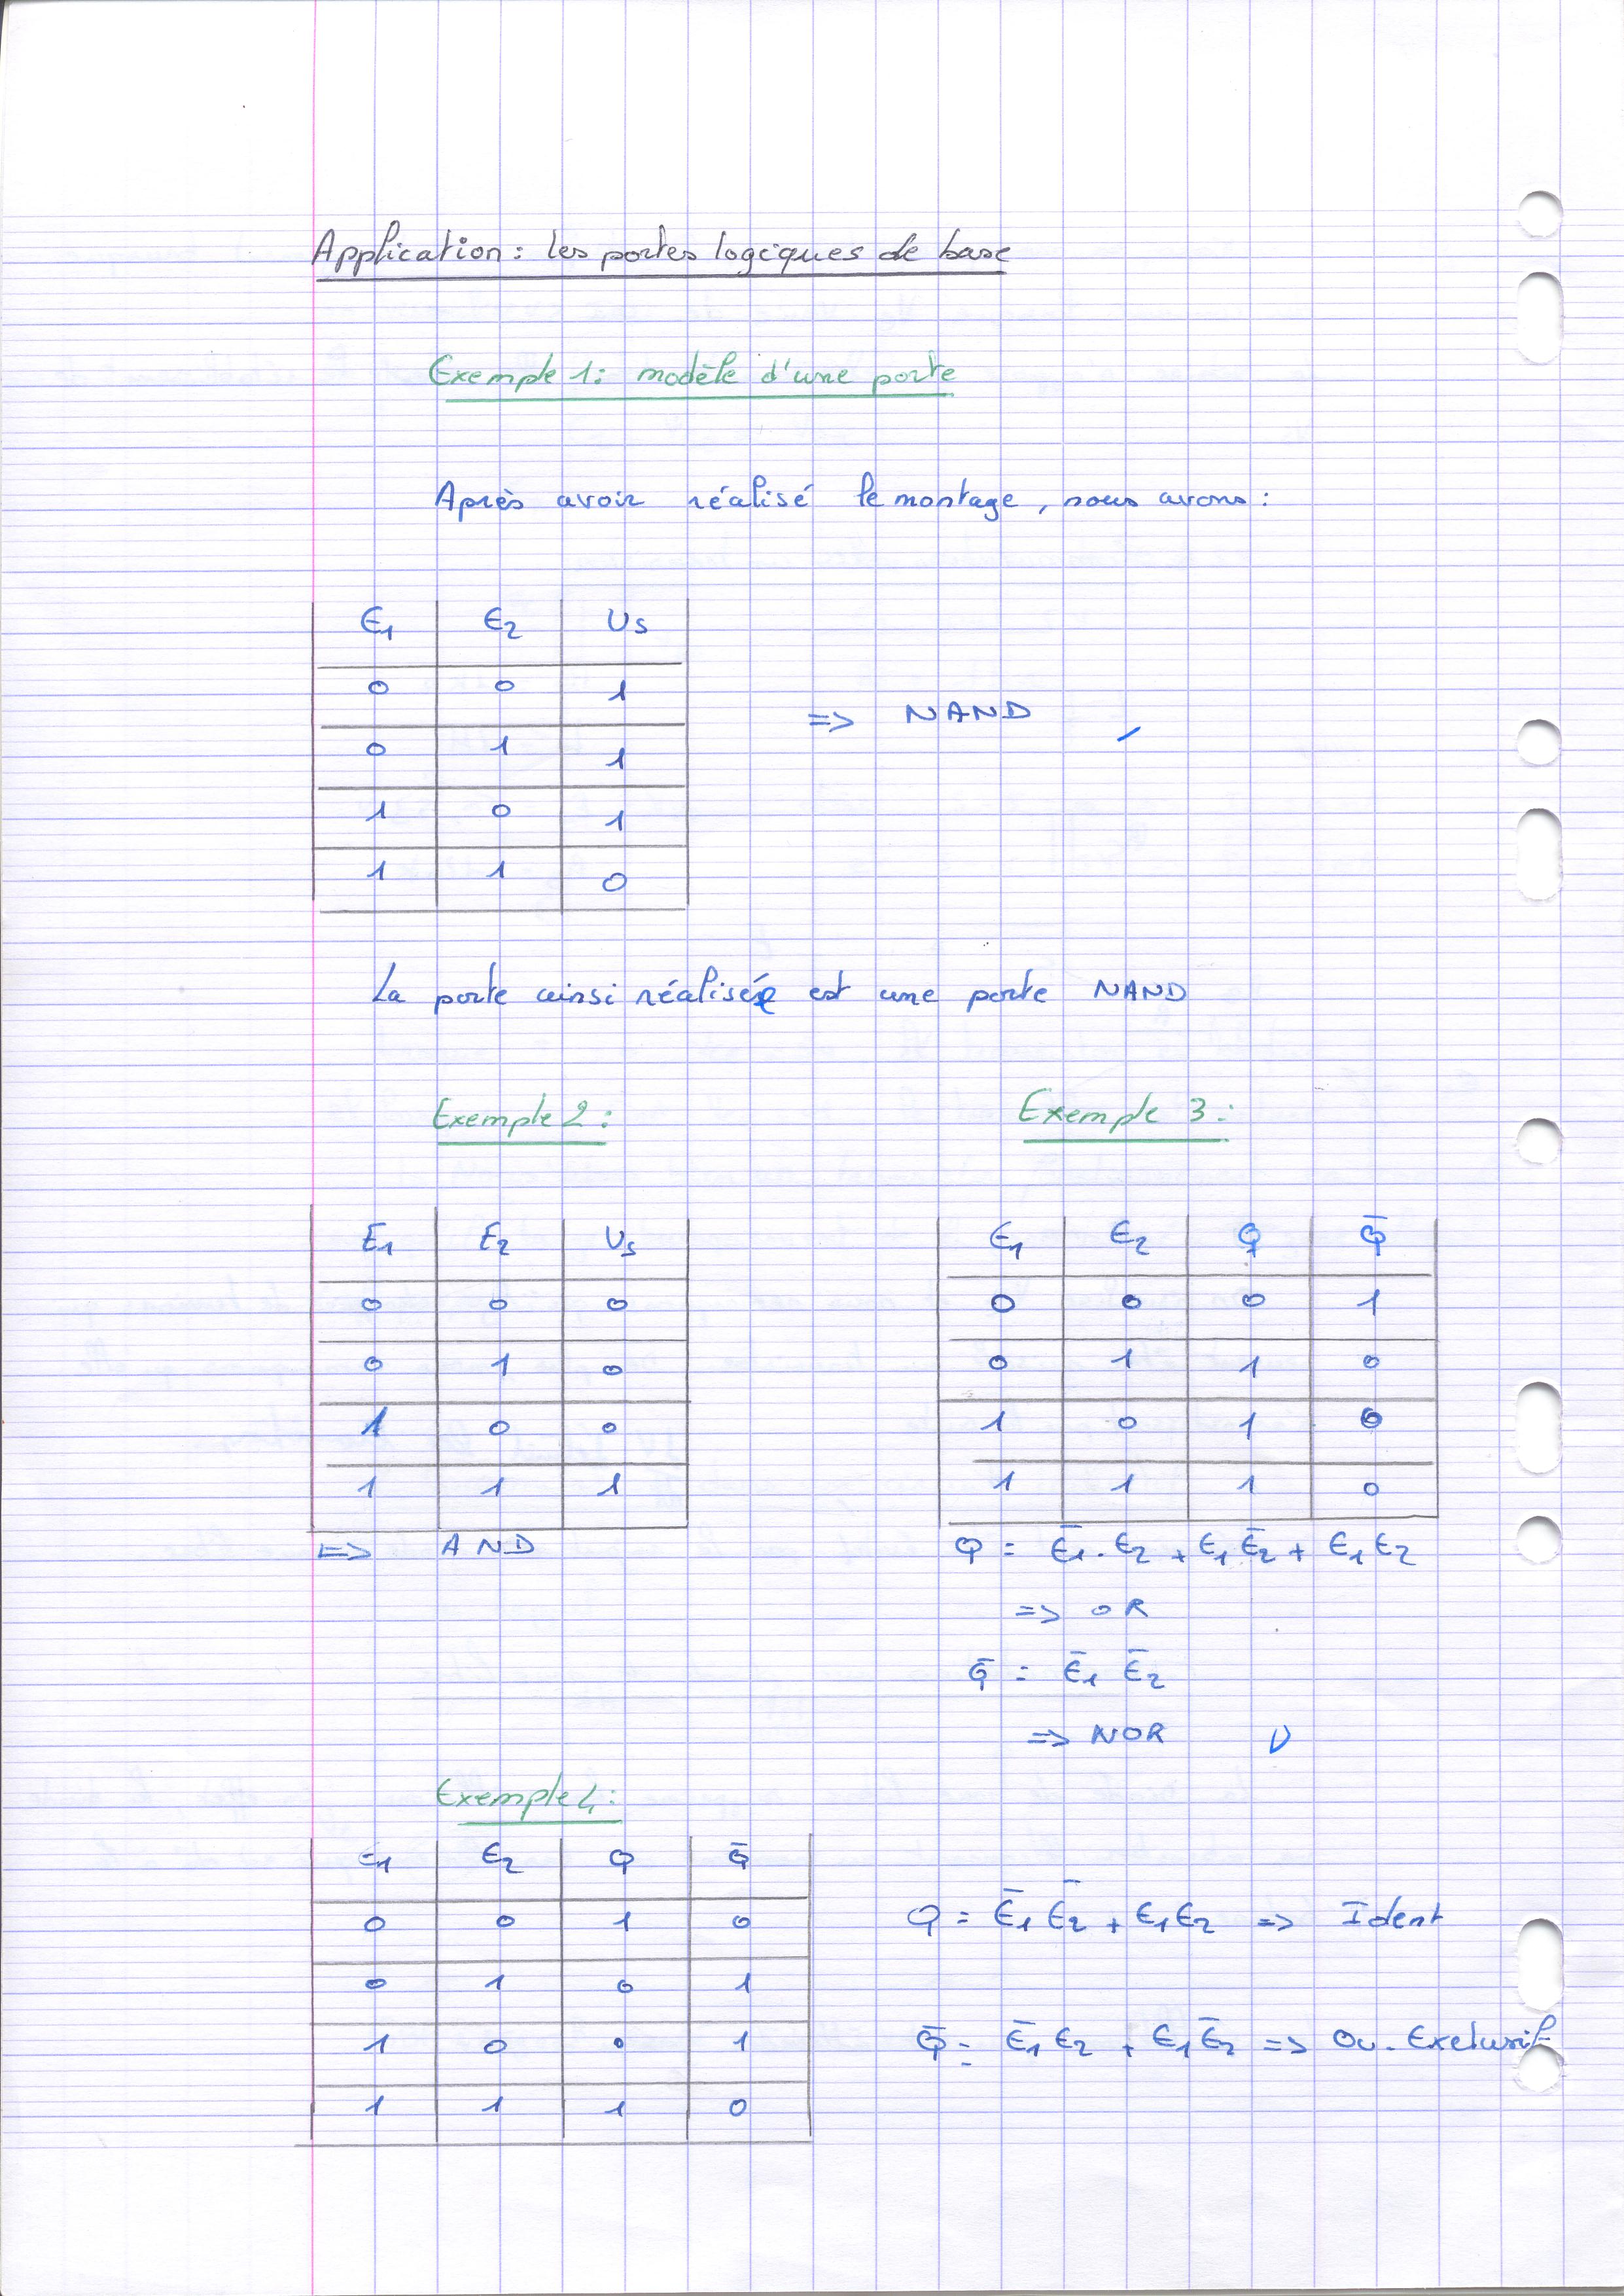 Application : les portes logiques de base
Exemple 1 : modèle d'une porte
Après avoir réalisé le montage, nous avons :
E1 E2 Us
0 0 1
0 1 1
1 0 1
1 1 0
=> NAND
La porte ainsi réalisée est une porte NAND
Exemple 2 :
E1 E2 Us
0 0 0
0 1 0
1 0 0
1 1 1
=> AND
Exemple 3 :
E1 E2 Q Q̄
0 0 0 1
0 1 1 0
1 0 1 0
1 1 1 0
Q = Ē1 . E2 + E1 Ē2 + E1 E2
=> OR
Q̄ = Ē1 Ē2
=> NOR
Exemple 4 :
E1 E2 Q Q̄
0 0 1 0
0 1 0 1
1 0 0 1
1 1 1 0
Q = Ē1 Ē2 + E1 E2 => Ident
Q̄ = Ē1 E2 + E1 Ē2 => Ou - Exclusif